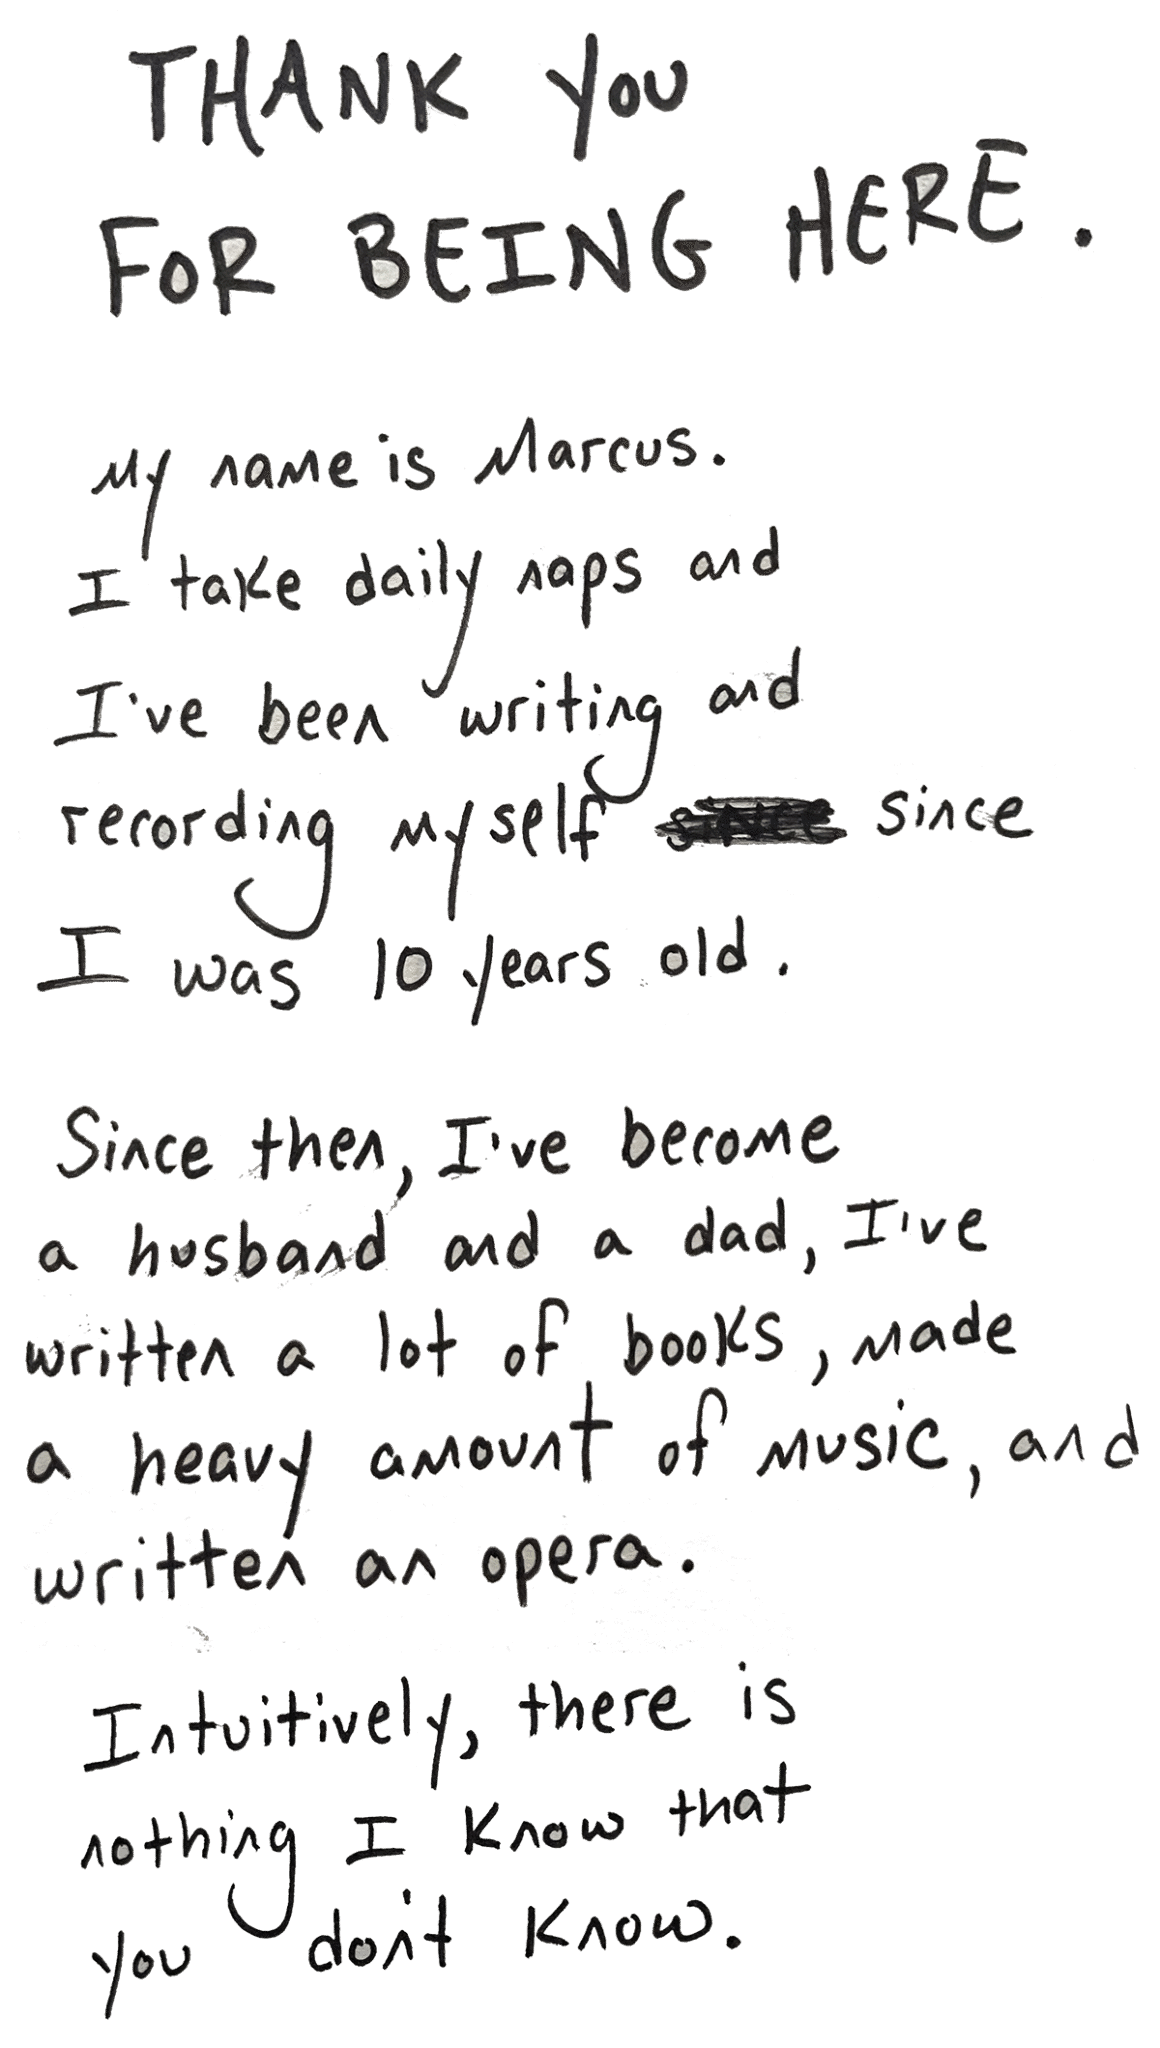 THANK YOU
FOR BEING HERE.
My name is Marcus.
I take daily naps and
I've been writing and
recording myself since
I was 10 years old.
Since then, I've become
a husband and a dad, I've
written a lot of books, made
a heavy amount of music, and
written an opera.
Intuitively, there is
nothing I know that
you don't know.